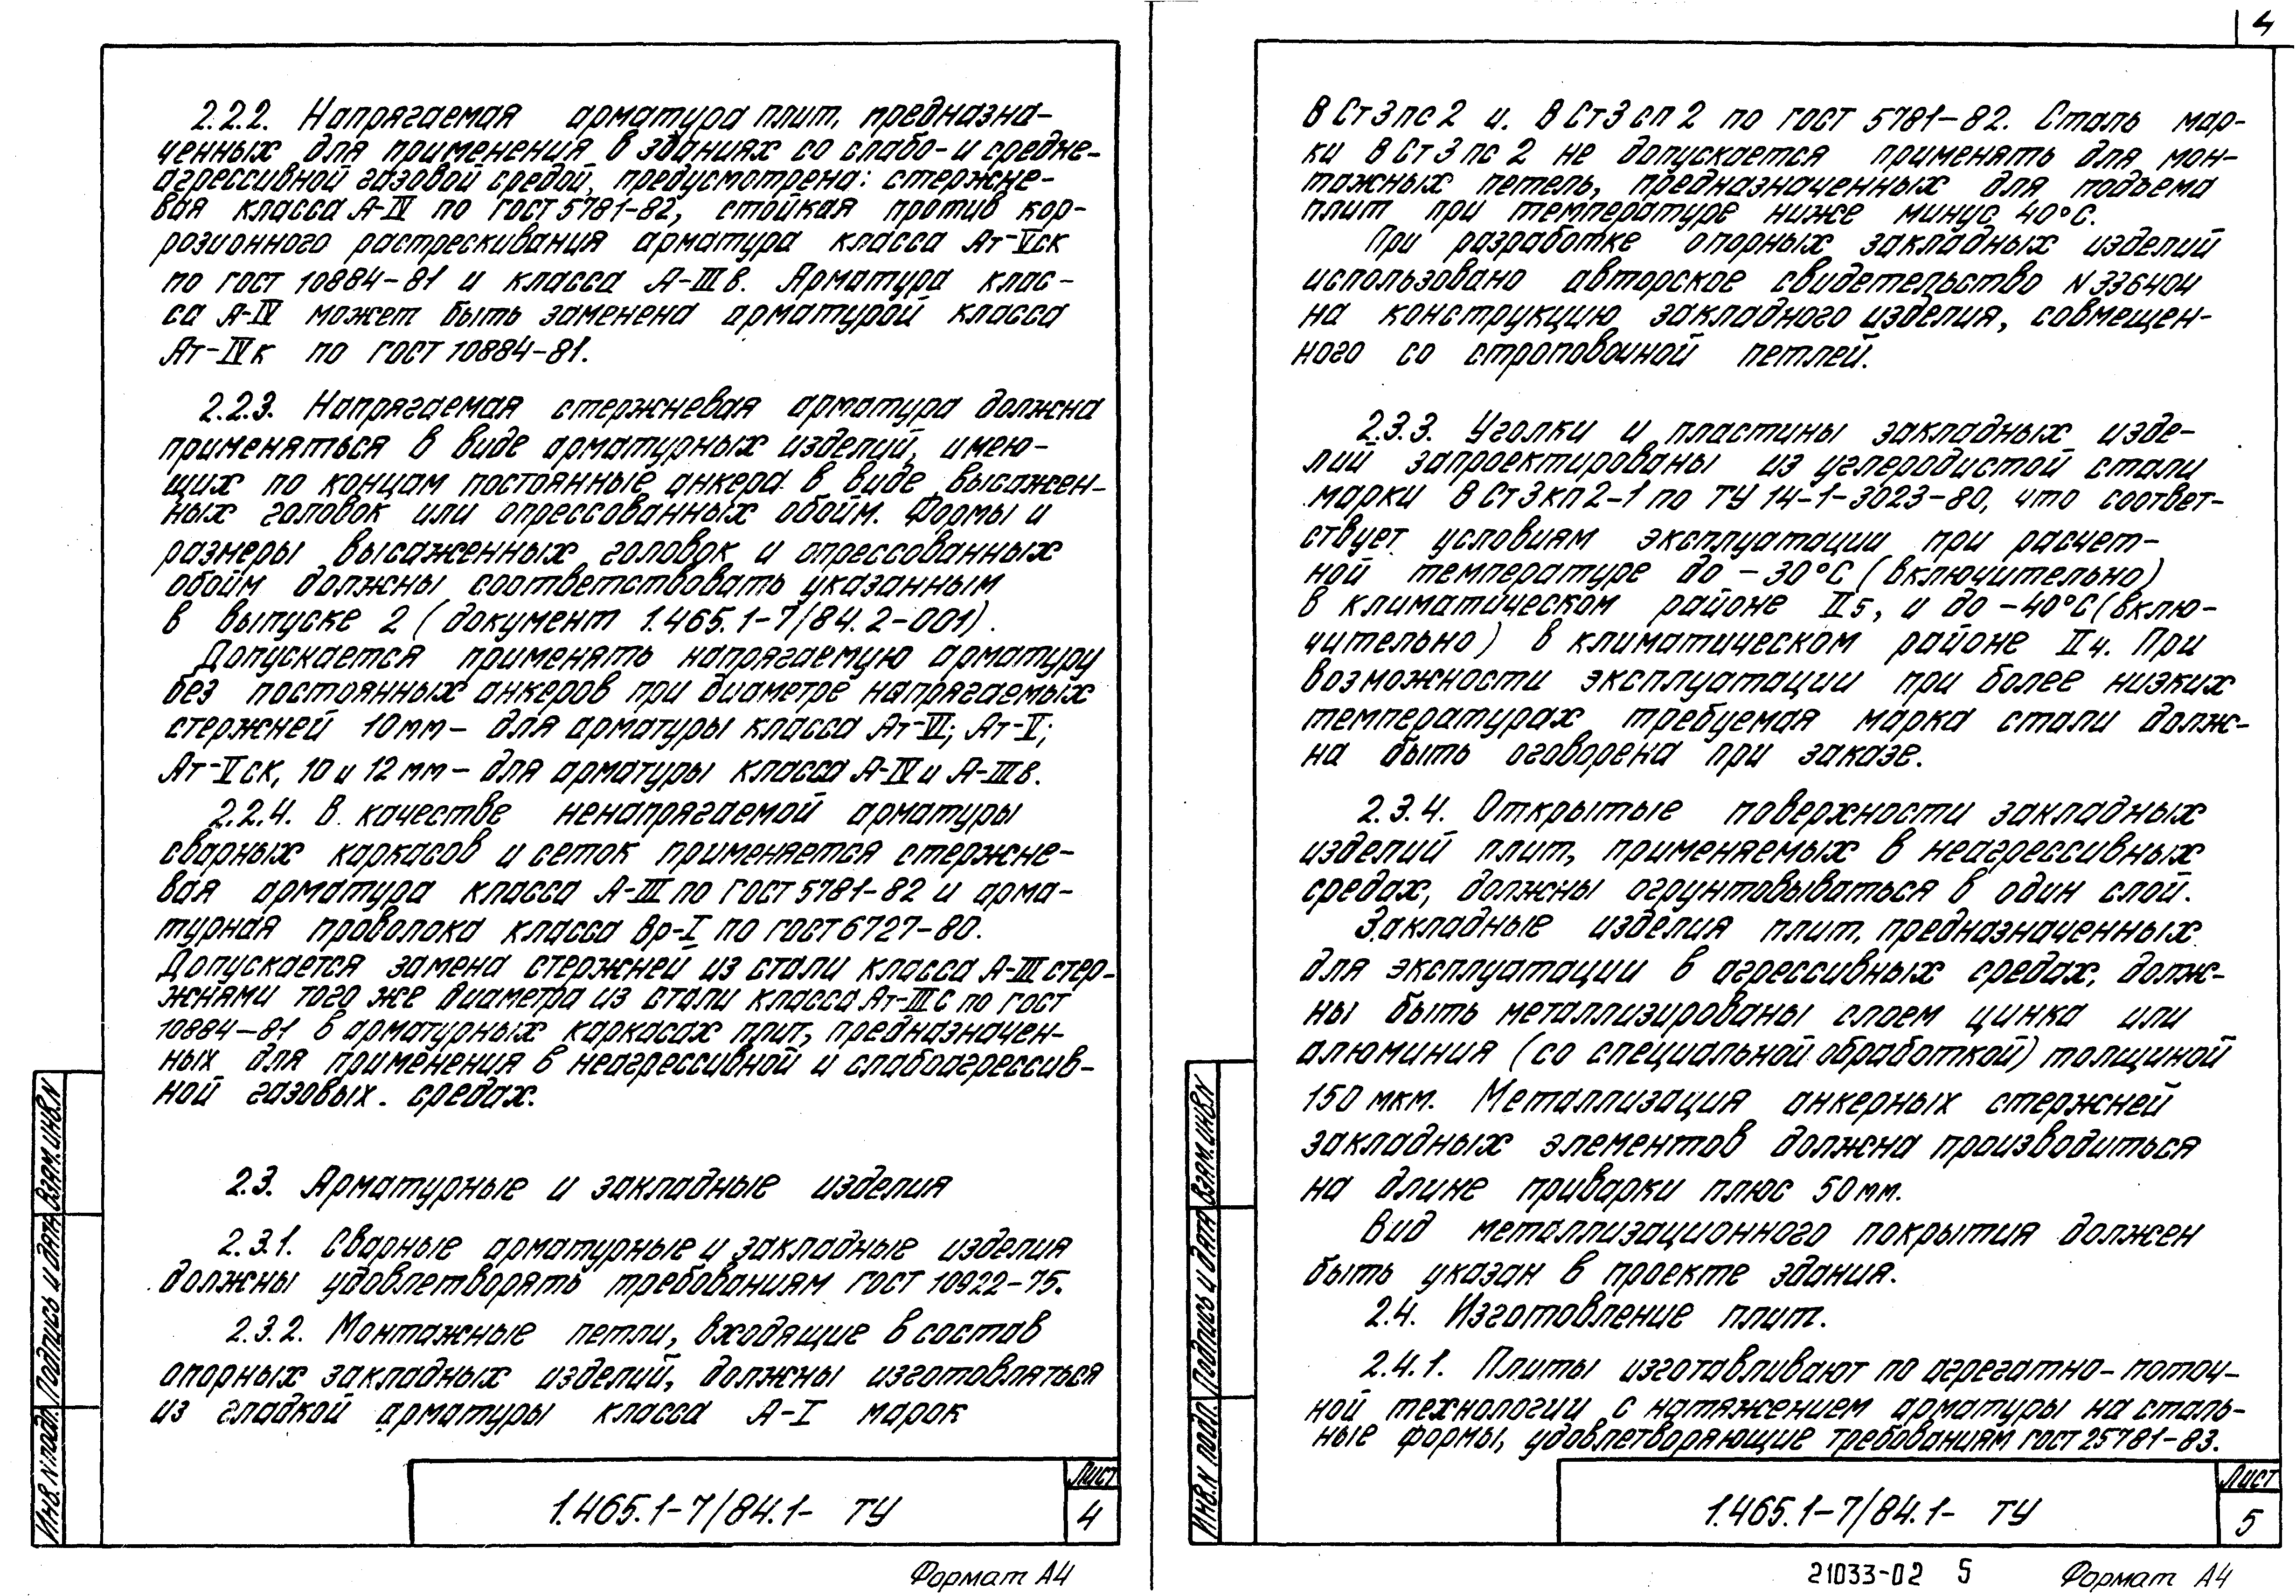 4
2.2.2. Напрягаемая арматура плит, предназна-
ченных для применения в зданиях со слабо- и средне-
агрессивной газовой средой, предусмотрена: стержне-
вая класса А-IV по ГОСТ 5781-82, стойкая против кор-
розионного растрескивания арматура класса Ат-Vск
по ГОСТ 10884-81 и класса А-IIIв. Арматура клас-
са А-IV может быть заменена арматурой класса
Ат-IVк по ГОСТ 10884-81.
2.2.3. Напрягаемая стержневая арматура должна
применяться в виде арматурных изделий, имею-
щих по концам постоянные анкера в виде высажен-
ных головок или опрессованных обойм. Формы и
размеры высаженных головок и опрессованных
обойм должны соответствовать указанным
в выпуске 2 (документ 1.465.1-7/84.2-001).
Допускается применять напрягаемую арматуру
без постоянных анкеров при диаметре напрягаемых
стержней 10мм - для арматуры класса Ат-VI; Ат-V;
Ат-Vск, 10 и 12 мм - для арматуры класса А-IV и А-IIIв.
2.2.4. В качестве ненапрягаемой арматуры
сварных каркасов и сеток применяется стержне-
вая арматура класса А-III по ГОСТ 5781-82 и арма-
турная проволока класса Вр-I по ГОСТ 6727-80.
Допускается замена стержней из стали класса А-III стер-
жнями того же диаметра из стали класса Ат-IIIС по ГОСТ
10884-81 в арматурных каркасах плит, предназначен-
ных для применения в неагрессивной и слабоагрессив-
ной газовых средах.
2.3. Арматурные и закладные изделия
2.3.1. Сварные арматурные и закладные изделия
должны удовлетворять требованиям ГОСТ 10922-75.
2.3.2. Монтажные петли, входящие в состав
опорных закладных изделий, должны изготовляться
из гладкой арматуры класса А-I марок
Инв. N подл. Подпись и дата Взам. инв. N
1.465.1-7/84.1- ТУ
Лист
4
Формат А4
В Ст 3 пс 2 и В Ст 3 сп 2 по ГОСТ 5781-82. Сталь мар-
ки В Ст 3 пс 2 не допускается применять для мон-
тажных петель, предназначенных для подъема
плит при температуре ниже минус 40°С.
При разработке опорных закладных изделий
использовано авторское свидетельство N 336404
на конструкцию закладного изделия, совмещен-
ного со строповочной петлей.
2.3.3. Уголки и пластины закладных изде-
лий запроектированы из углеродистой стали
марки В Ст 3 кп 2-1 по ТУ 14-1-3023-80, что соответ-
ствует условиям эксплуатации при расчет-
ной температуре до -30°С (включительно)
в климатическом районе II5, и до -40°С (вклю-
чительно) в климатическом районе II4. При
возможности эксплуатации при более низких
температурах требуемая марка стали долж-
на быть оговорена при заказе.
2.3.4. Открытые поверхности закладных
изделий плит, применяемых в неагрессивных
средах, должны огрунтовываться в один слой.
Закладные изделия плит, предназначенных
для эксплуатации в агрессивных средах, долж-
ны быть металлизированы слоем цинка или
алюминия (со специальной обработкой) толщиной
150 мкм. Металлизация анкерных стержней
закладных элементов должна производиться
на длине приварки плюс 50мм.
Вид металлизационного покрытия должен
быть указан в проекте здания.
2.4. Изготовление плит.
2.4.1. Плиты изготавливают по агрегатно-поточ-
ной технологии с натяжением арматуры на сталь-
ные формы, удовлетворяющие требованиям ГОСТ 25781-83.
Инв. N подл. Подпись и дата Взам. инв. N
1.465.1-7/84.1- ТУ
Лист
5
21033-02 5 Формат А4